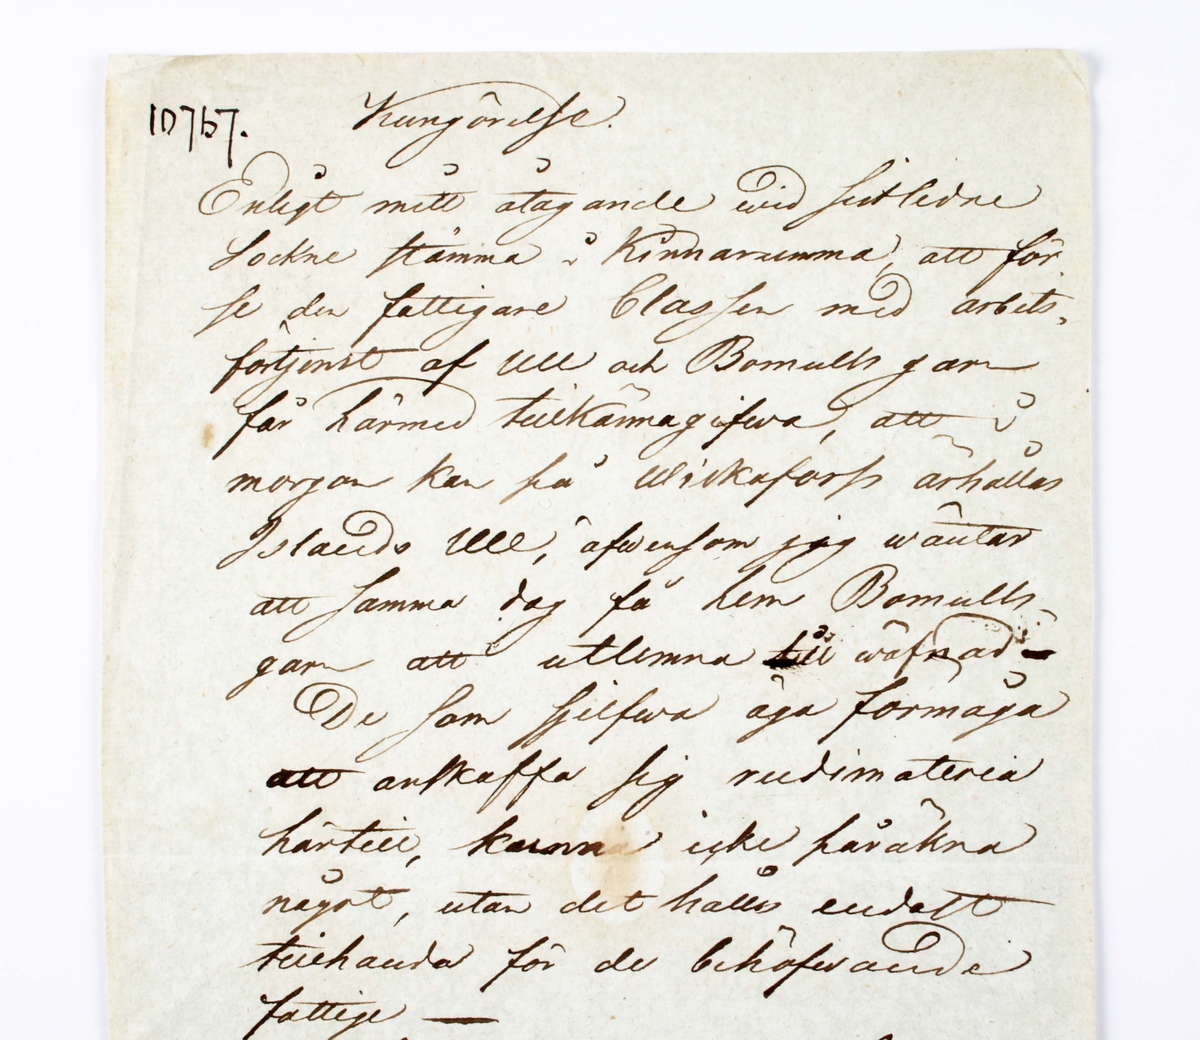 10767.
Kungörelse.
Enligt mitt åtagande wid sistlidne
Sockne stämma i Kinnarumma, att för
se den fattigare Classen med arbets-
förtjenst af Ull och Bomulls garn
får härmed tillkännagifwa, att i
morgon kan på Wiskafors erhållas
Islands Ull, äfwensom jag wäntar
att samma dag få hem Bomulls-
garn att utlemna till wäfnad -
De som sjelfwa äga förmåga
att anskaffa sig rudimateria
härtill, kunna icke påräkna
något, utan det hålles endast
tillhanda för de behöfwande
fattige —